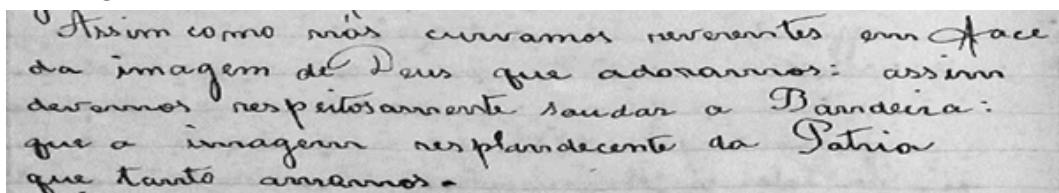 Assim como nós curvamos reverentes em face
da imagem de Deus que adoramos: assim
devemos respeitosamente saudar a Bandeira:
que a imagem resplandecente da Patria
que tanto amamos.